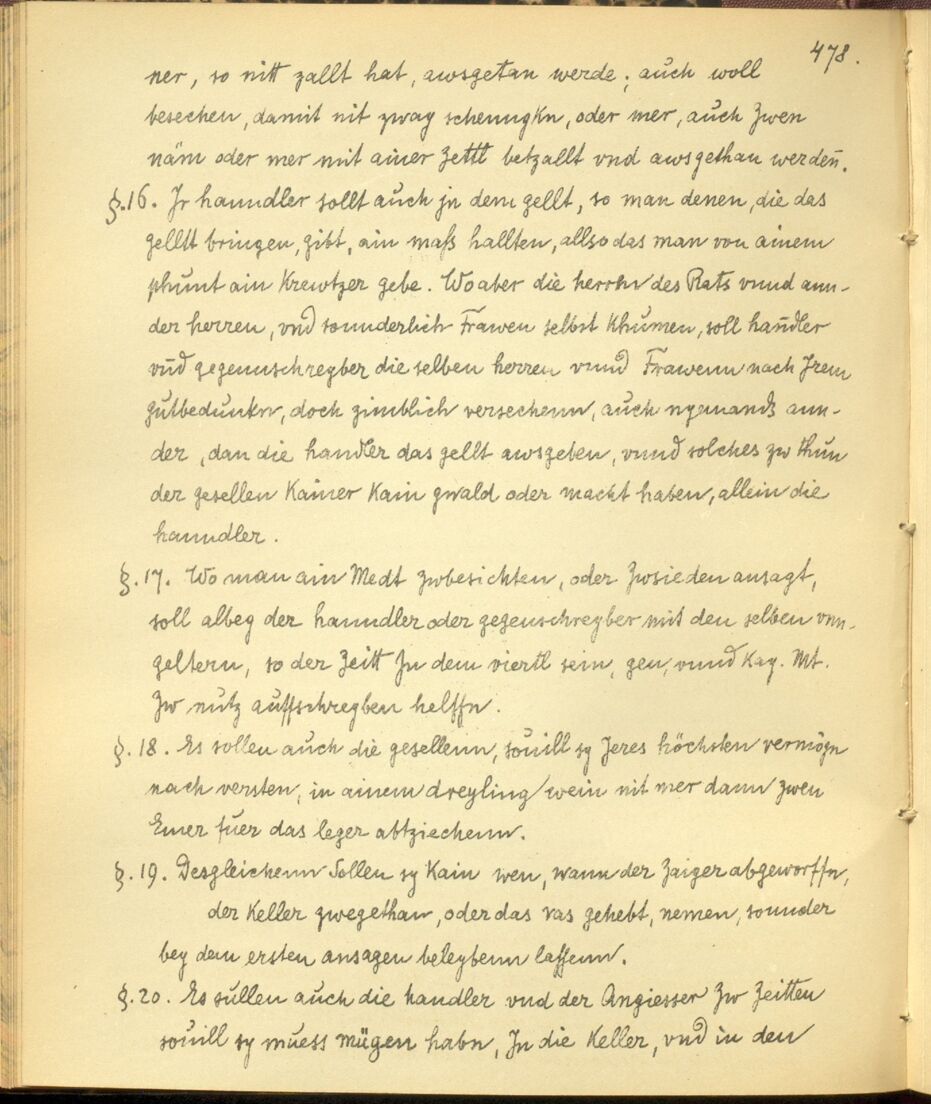 478.
ner, so nitt zallt hat, awsgetan werde; auch woll
besechen, damit nit zway schenngkn, oder mer, auch Zwen
näm oder mer mit ainer Zettl betzallt vnd awsgethan werden̄.
§.16. Jr hanndler sollt auch jn dem gellt, so man denen, die das
gelltt bringen, gibt, ain maß hallten, allso das man von ainem
phunt ain Krewtzer gebe. Wo aber die herrn des Rats vnnd ann-
der herren, vnd sonnderlich Frawen selbst Khumen, soll han̄dler
vnd gegennschreyber die selben herren vnnd Frawenn nach Jrem
gutbedunkn, doch zimblich versechenn, auch nyemands ann-
der, dan die handler das gellt awsgeben, vnnd solches zw thun
der gesellen Kainer Kain gwald oder macht haben, allein die
hanndler.
§.17. Wo man ain Medt zwbesichten, oder Zwsieden ansagt,
soll albeg der hanndler oder gegenschreyber mit den selben vnn-
geltern, so der Zeitt Jn dem viertl sein, gen, vnnd Kay. Mt.
Zw nutz auffschreyben helffn.
§.18. Es sollen auch die gesellenn, souill sy Jeres höchsten vermögn
nach versten, in ainem dreyling wein nit mer dann zwen
Emer fuer das leger abtziechenn.
§.19. Desgleichenn Sollen sy Kain wen, wann der Zaiger abgeworffn,
der Keller zwegethan, oder das vas gehebt, nemen, sonnder
bey dem ersten ansagen beleybenn lassenn.
§.20. Es sullen auch die handler vnd der Angiesser Zw Zeitten
souill sy muess mügen habn, Jn die Keller, vnd in den